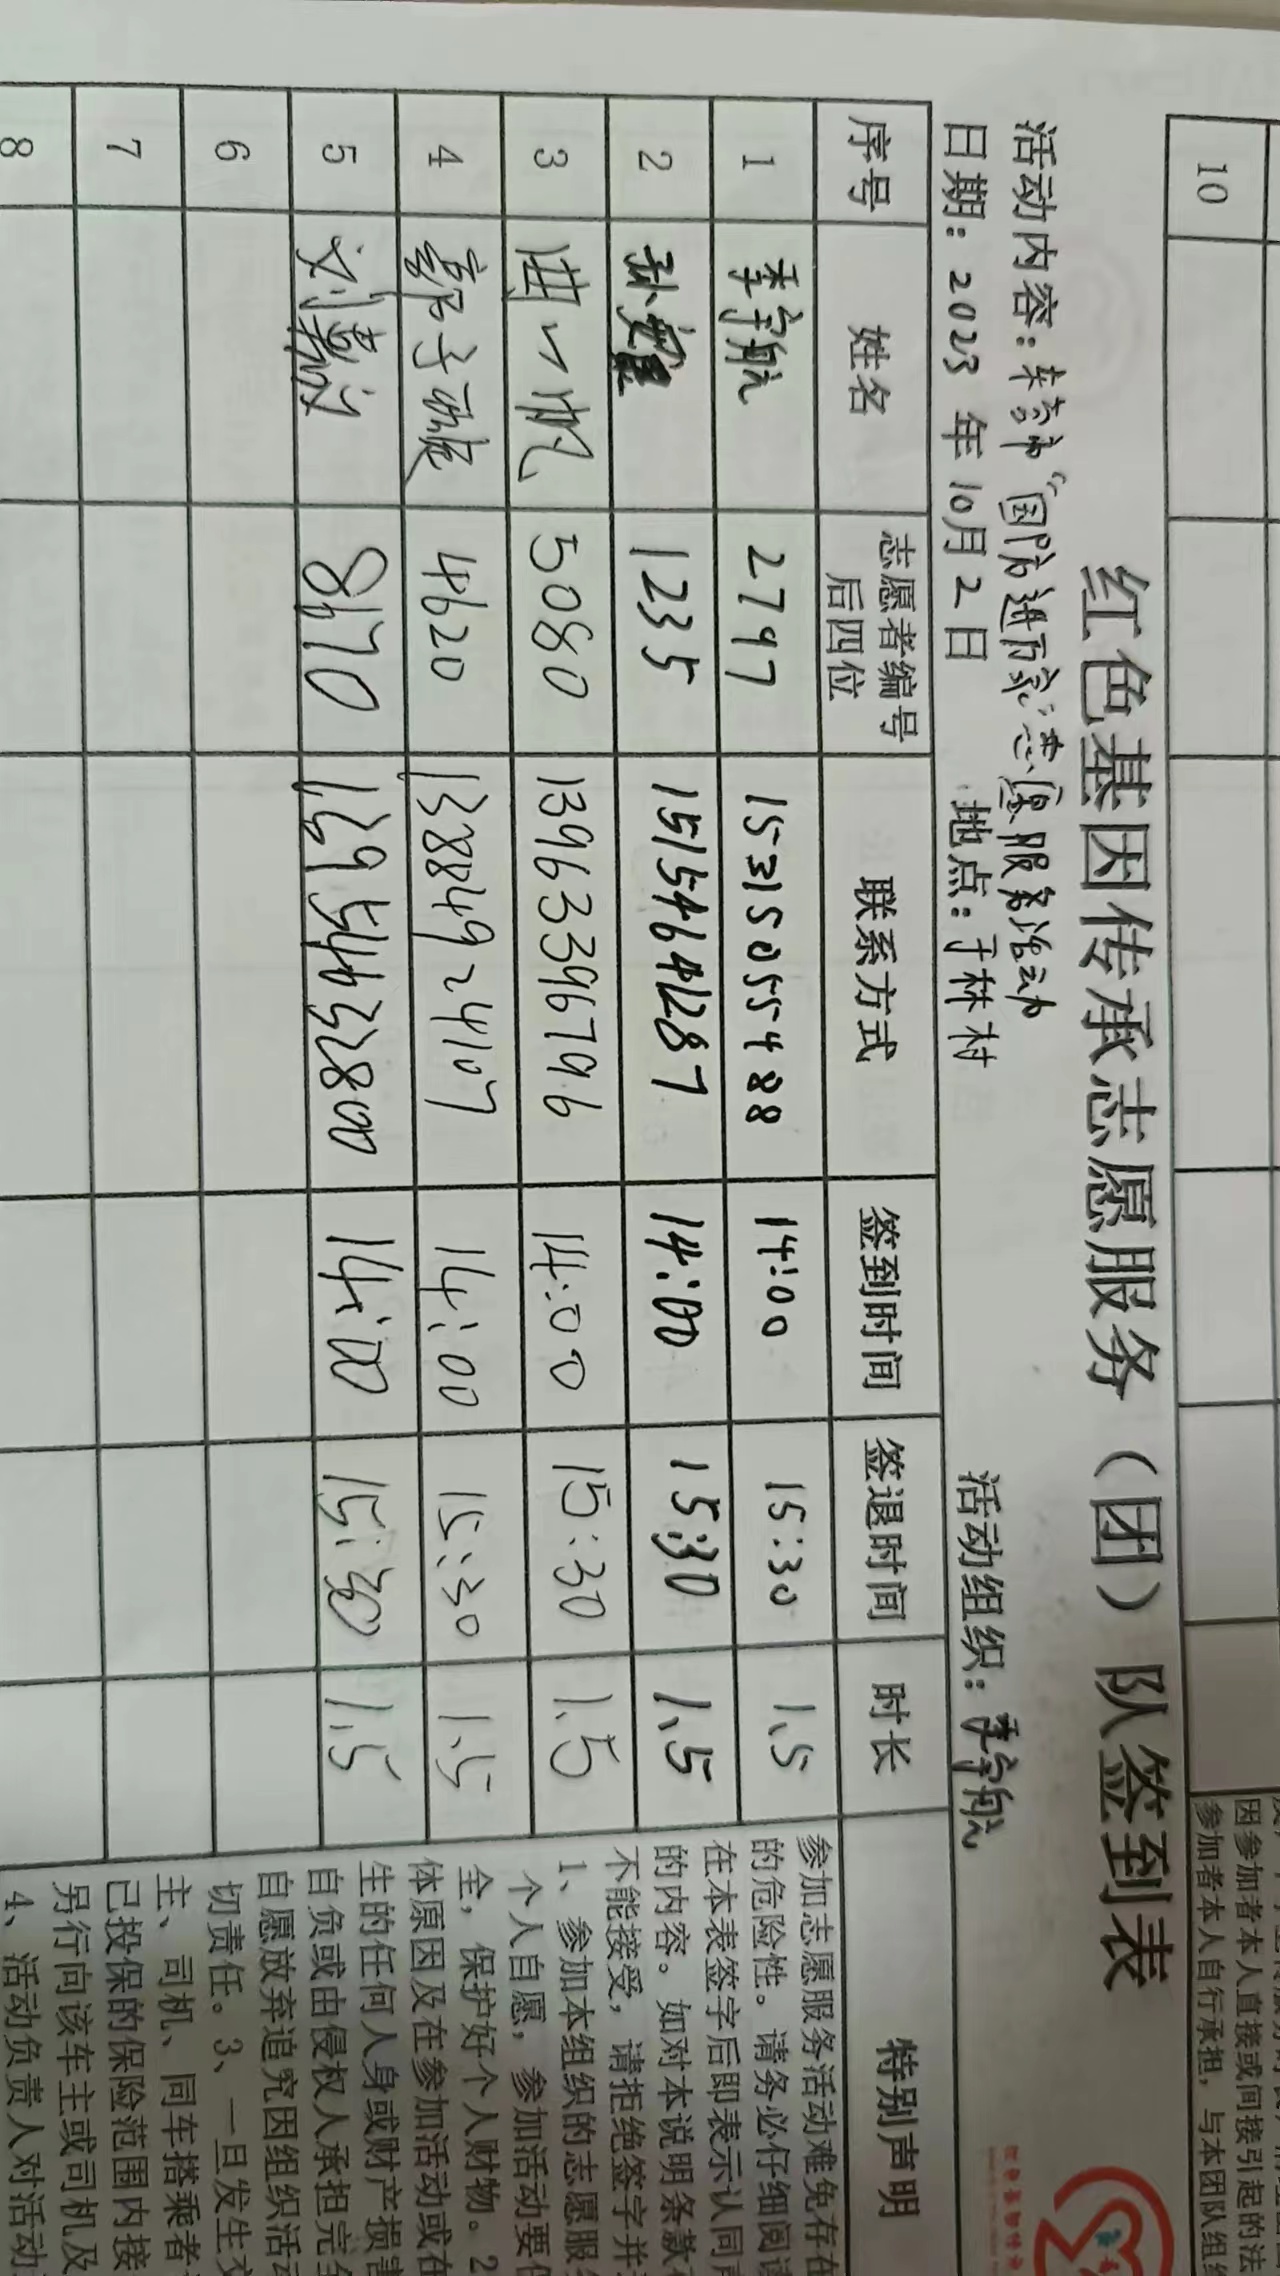 10
因参加者本人直接或间接引起的法
参加者本人自行承担，与本团队组织
红色基因传承志愿服务（团）队签到表
活动内容：莱芜市“国防进万家”志愿服务活动
日期：2023 年 10月 2 日 地点：于林村 活动组织：李宇航
序号 姓名 志愿者编号后四位 联系方式 签到时间 签退时间 时长 特别声明
1 李宇航 2797 15315055488 14:00 15:30 1.5
2 孙 1235 15154641287 14:00 15:30 1.5
3 曲一帆 5080 13963396796 14:00 15:30 1.5
4 郭子璇 4620 13884924107 14:00 15:30 1.5
5 刘 8670 13954632800 14:00 15:30 1.5
6
7
8
参加志愿服务活动难免存在
的危险性。请务必仔细阅读
在本表签字后即表示认同声
的内容。如对本说明条款有
不能接受，请拒绝签字并
1、参加本组织的志愿服务
个人自愿，参加活动要保
全，保护好个人财物。2
体原因及在参加活动或在
生的任何人身或财产损害
自负或由侵权人承担完全
自愿放弃追究因组织活动
切责任。3、一旦发生交
主、司机、同车搭乘者
已投保的保险范围内接
另行向该车主或司机及
4、活动负责人对活动